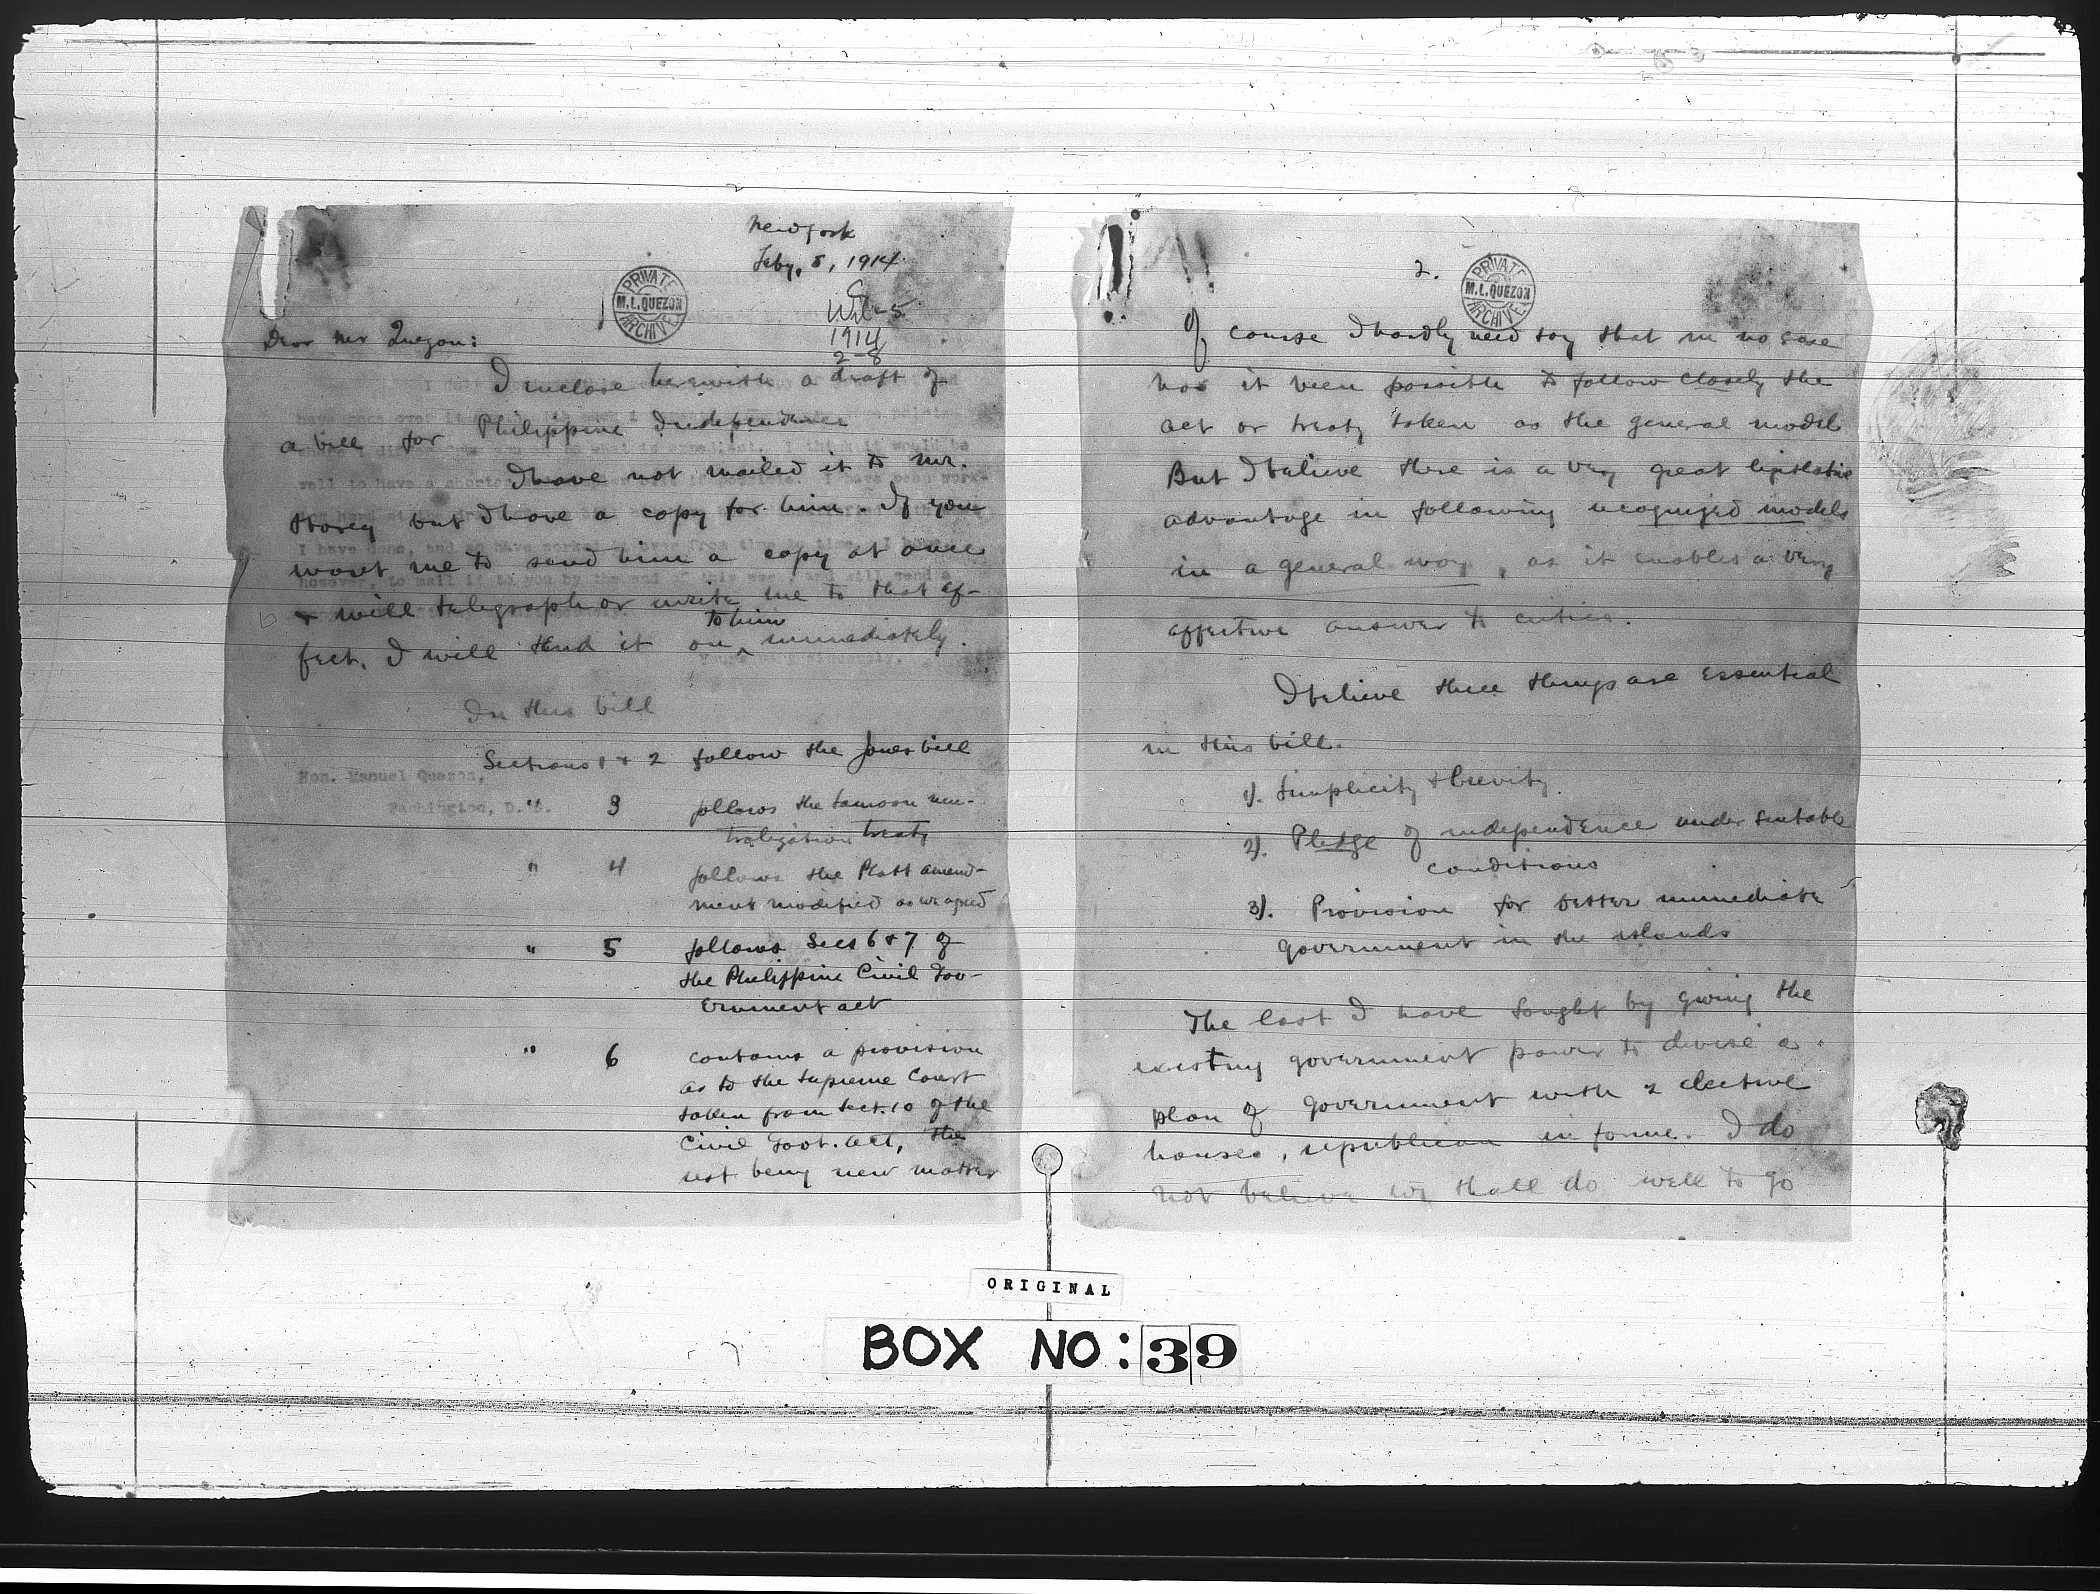 New York
Feby. 8, 1914
PRIVATE
M.L. QUEZON
ARCHIVE
1914
2-8
Dear Mr Quezon:
I inclose herewith a draft of
a bill for Philippine Independence
I have not mailed it to Mr.
Storey but I have a copy for him. If you
want me to send him a copy at once
& will telegraph or write me to that ef-
fect, I will send it on to him immediately.
In this bill
Sections 1 & 2 follow the Jones bill
" 3 follows the Samoan neu-
tralization treaty
" 4 follows the Platt amend-
ment modified as we agreed
" 5 follows Secs 6 & 7 of
the Philippine Civil Gov-
ernment act
" 6 contains a provision
as to the Supreme Court
taken from Sect. 10 of the
Civil Govt. Act, the
rest being new matter
Hon. Manuel Quezon,
Washington, D.C.
2.
PRIVATE
M.L. QUEZON
ARCHIVE
Of course I hardly need say that in no case
has it been possible to follow closely the
act or treaty taken as the general model
But I believe there is a very great legislative
advantage in following recognized models
in a general way, as it enables a very
effective answer to critics.
I believe three things are essential
in this bill.
1). Simplicity & brevity.
2). Pledge of independence under suitable
conditions
3). Provision for better immediate
government in the islands
The last I have sought by giving the
existing government power to devise a
plan of government with 2 elective
houses, republican in form. I do
not believe we shall do well to go
ORIGINAL
BOX NO: 39